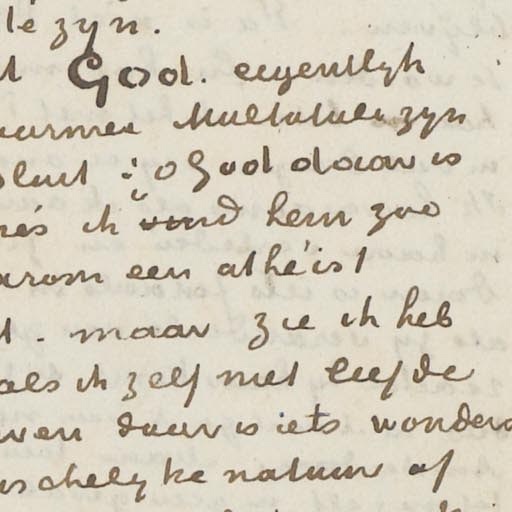 le zyn.
t God. eigentlyk
waarmee Multatuli zyn
sluit: o God daar is
nés ik vind hem zoo
arom een athéist
t. maar zie ik heb
als ik zelf met liefde
ven daar is iets wonders
nschelyke natuur of